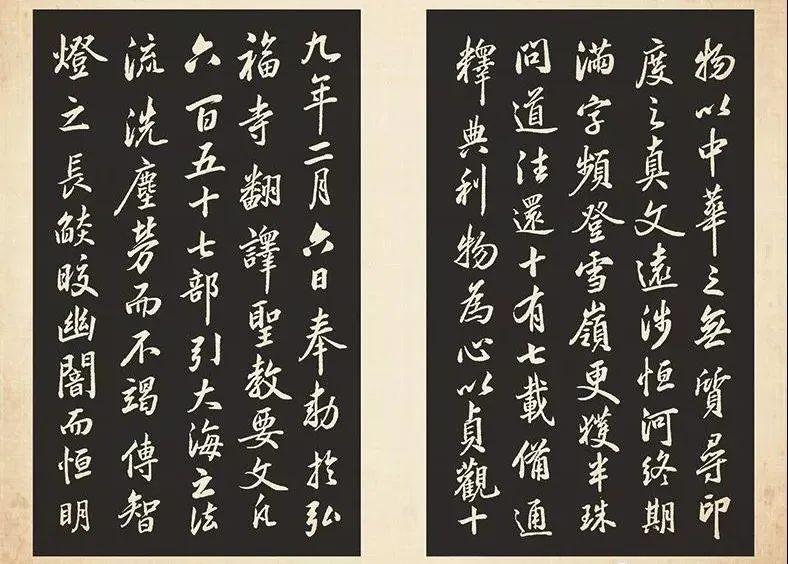 物以中華之無質尋印
度之真文遠涉恒河終期
滿字頻登雪嶺更獲半珠
問道法還十有七載備通
釋典利物為心以貞觀十
九年二月六日奉勅於弘
福寺翻譯聖教要文凡
六百五十七部引大海之法
流洗塵勞而不竭傳智
燈之長焰皎幽闇而恒明